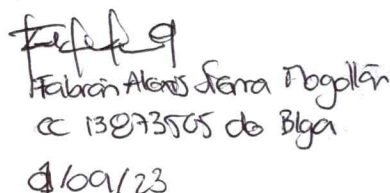 Fabián Alexis Sierra Mogollón
CC 13873505 de Blga
1/09/23